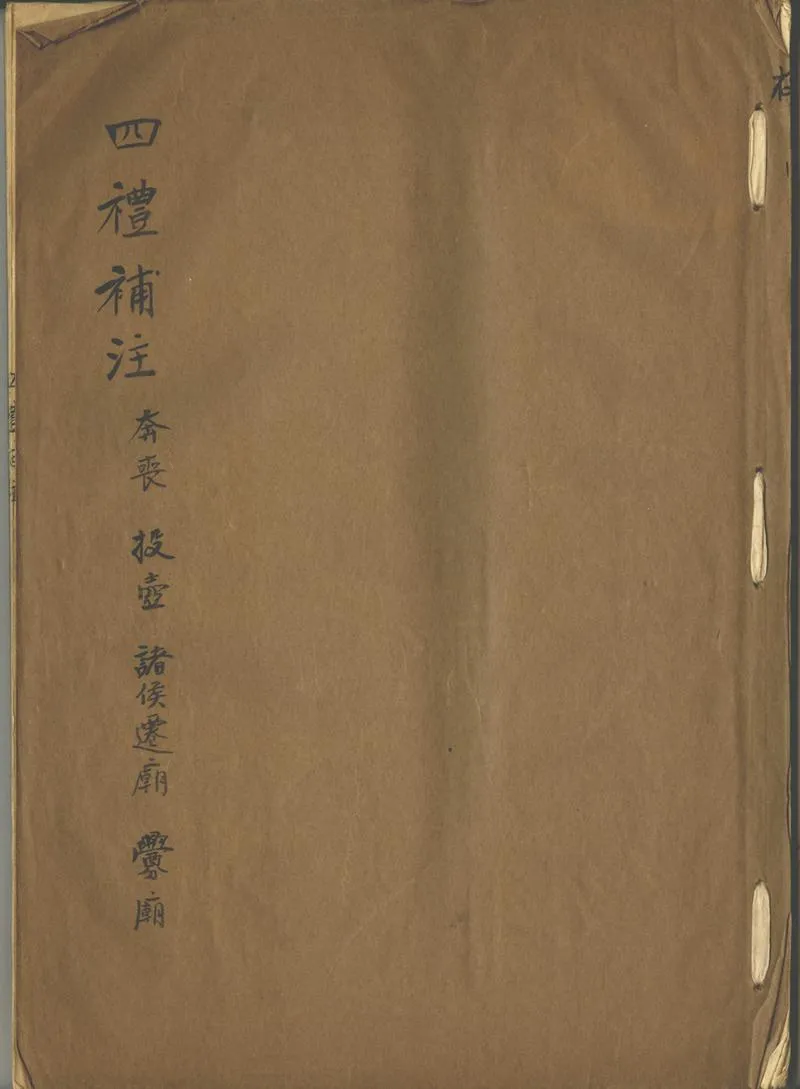 四禮補注 奔喪 投壺 諸侯遷廟 釁廟